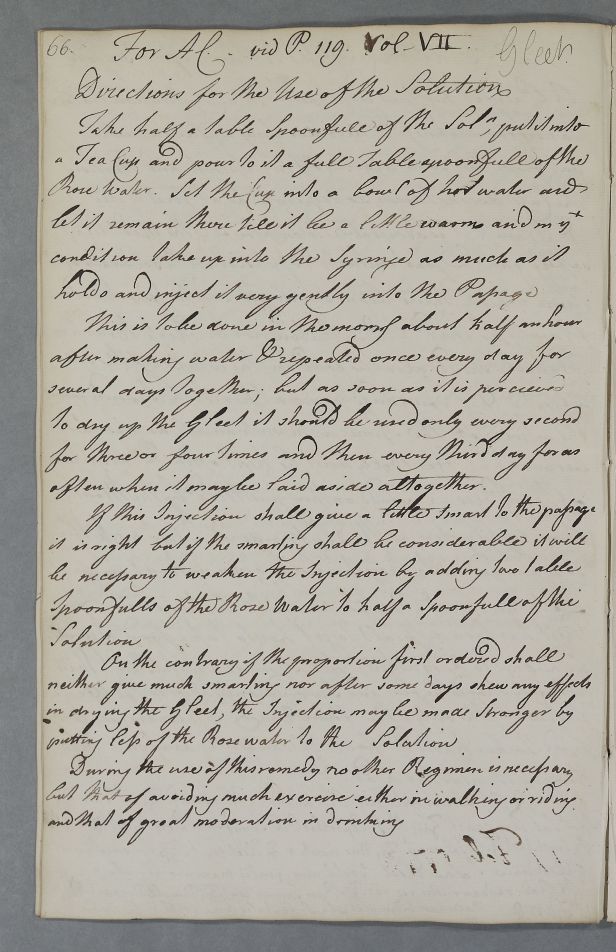 66.
For AC - vid P. 119. Vol-VII.
Gleet
Directions for the Use of the Solution
Take half a table Spoonfull of the Solⁿ, put it into
a Tea Cup and pour to it a full Tablespoonfull of the
Rose Water. Set the Cup into a bowl of hot water and
let it remain there till it be a little warm and in yᵗ
condition take up into the Syringe as much as it
holds and inject it very gently into the Paſsage
This is to be done in the morng about half an hour
after making water & repeated once every day for
several days together; but as soon as it is percieved
to dry up the Gleet it should be used only every second
for three or four times and then every third day for as
often when it may be laid aside altogether.
If this Injection shall give a little smart to the paſsage
it is right but if the smarting shall be considerable it will
be neceſsary to weaken the Injection by adding two table
Spoonfulls of the Rose Water to half a Spoonfull of the
Solution
On the contrary if the proportion first ordered shall
neither give much smarting nor after some days shew any effects
in drying the Gleet, the Injection may be made stronger by
putting leſs of the Rose water to the Solution
During the use of this remedy no other Regimen is neceſsary
but that of avoiding much exercise either in walking or riding
and that of great moderation in drinking